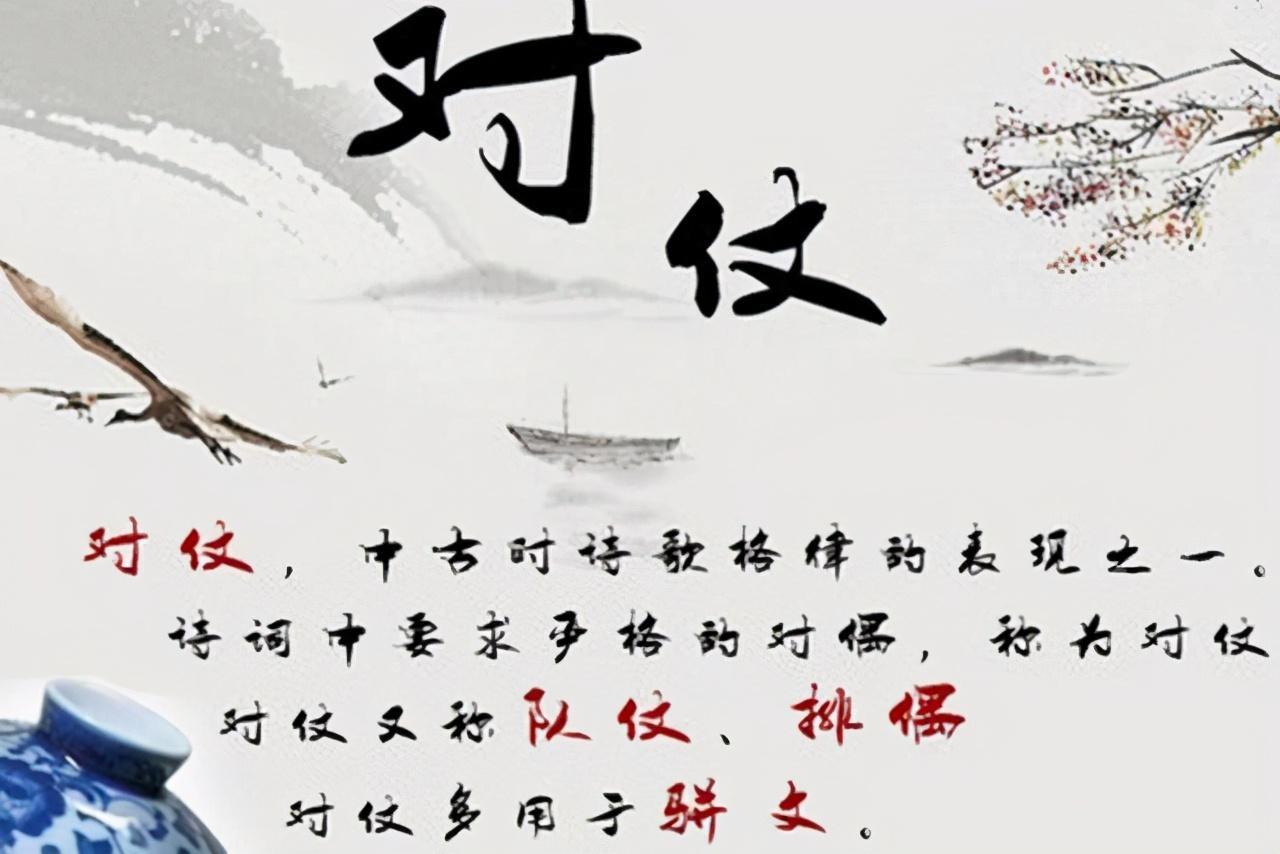 对仗
对仗，中古时诗歌格律的表现之一。
诗词中要求严格的对偶，称为对仗
对仗又称队仗、排偶
对仗多用于骈文。